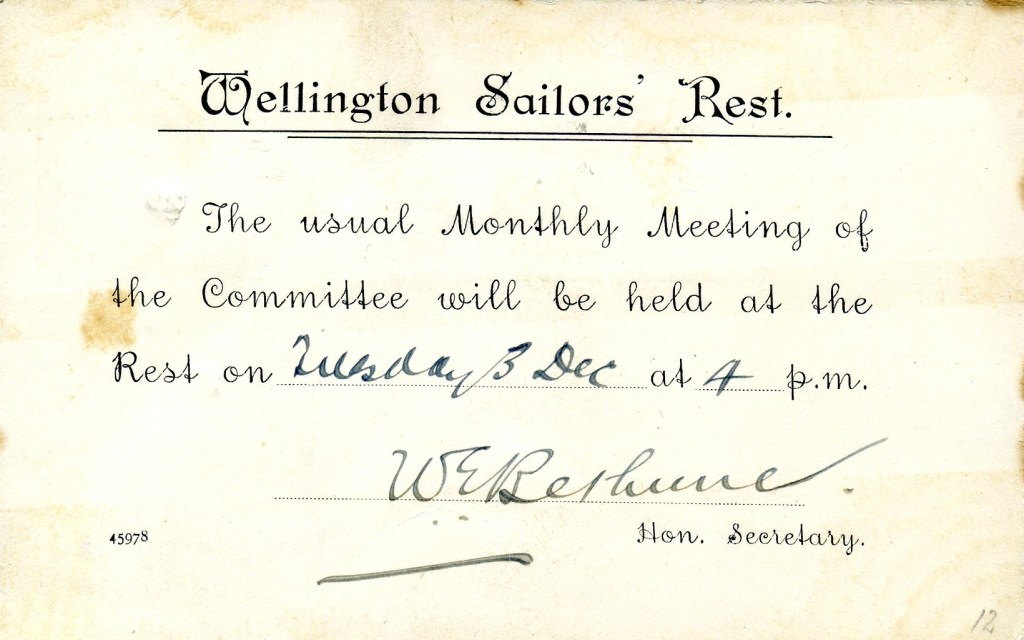 Wellington Sailors' Rest.
The usual Monthly Meeting of
the Committee will be held at the
Rest on Tuesday 3 Dec at 4 p.m.
W E Bethune
45978 Hon. Secretary.
12